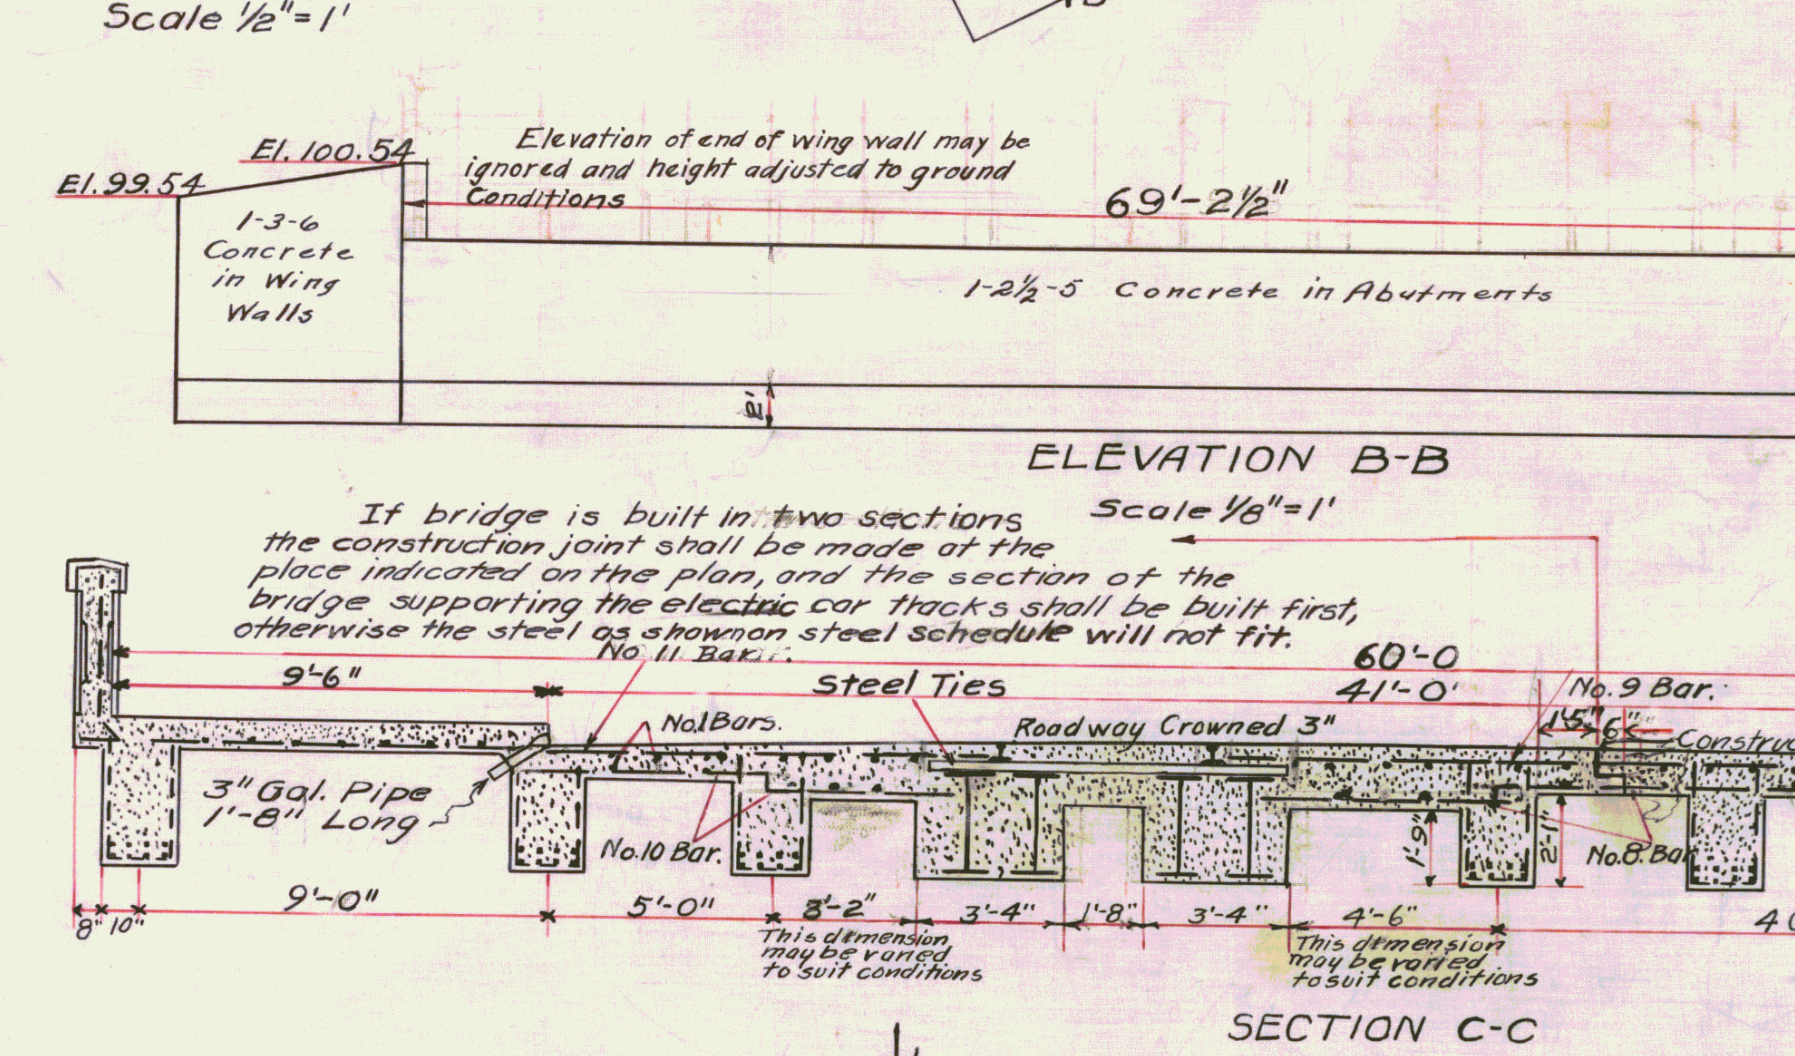 Scale ½"=1'
El. 100.54
El. 99.54
Elevation of end of wing wall may be
ignored and height adjusted to ground
Conditions
69'-2½"
1-3-6
Concrete
in Wing
Walls
1-2½-5 Concrete in Abutments
2'
ELEVATION B-B
Scale ⅛"=1'
If bridge is built in two sections
the construction joint shall be made at the
place indicated on the plan, and the section of the
bridge supporting the electric car tracks shall be built first,
otherwise the steel as shown on steel schedule will not fit.
No 11 Bar.
60'-0
9'-6"
Steel Ties
41'-0'
No. 9 Bar.
No.1 Bars.
Roadway Crowned 3"
1'5"
6"
3" Gal. Pipe
1'-8" Long
No.10 Bar.
1'-9"
2'-1"
No.8. Bar
8"
10"
9'-0"
5'-0"
3'-2"
3'-4"
1'-8"
3'-4"
4'-6"
This dimension
may be varied
to suit conditions
This dimension
may be varied
to suit conditions
SECTION C-C